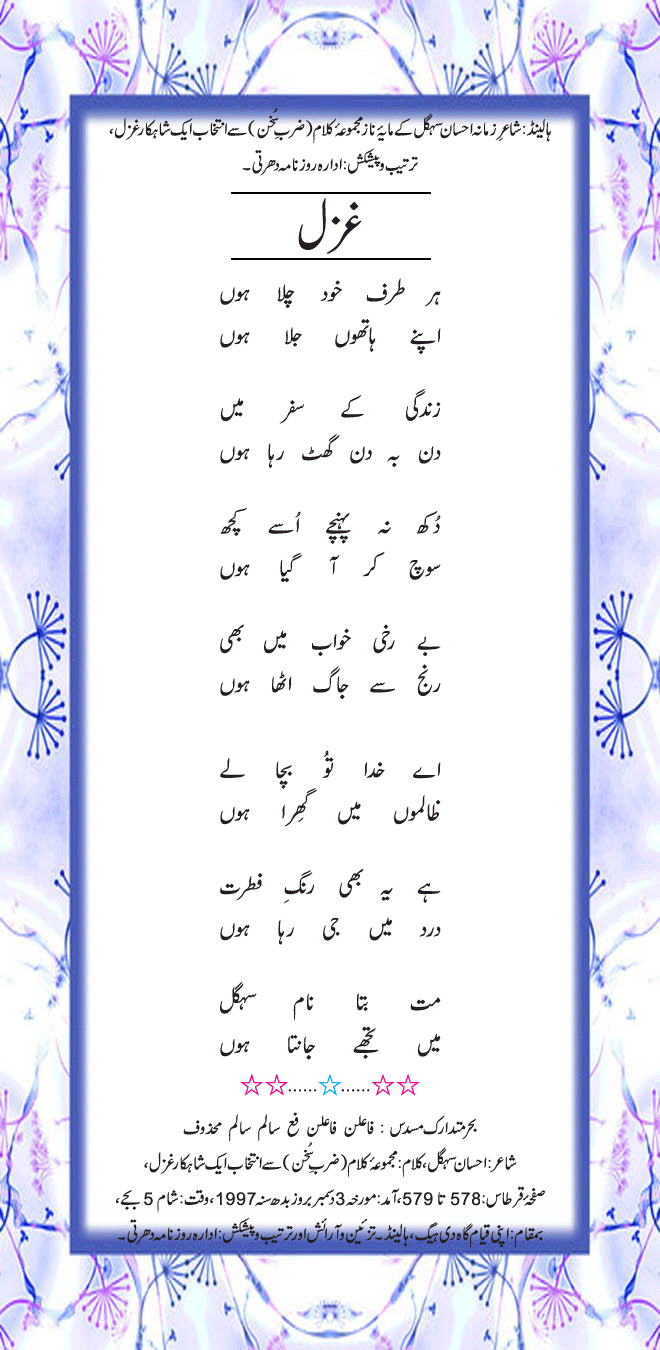 ہالینڈ: شاعرِ زمانہ احسان سہگل کے مایۂ ناز مجموعۂ کلام (ضربِ سُخن) سے انتخاب ایک شاہکار غزل،
ترتیب و پیشکش: ادارہ روزنامہ دھرتی۔
غزل
ہر طرف خود چلا ہوں
اپنے ہاتھوں جلا ہوں
زندگی کے سفر میں
دن بہ دن گھٹ رہا ہوں
دُکھ نہ پہنچے اُسے کچھ
سوچ کر آ گیا ہوں
بے رخی خواب میں بھی
رنج سے جاگ اٹھا ہوں
اے خدا تُو بچا لے
ظالموں میں گھِرا ہوں
ہے یہ بھی رنگِ فطرت
درد میں جی رہا ہوں
مت بتا نام سہگل
میں تجھے جانتا ہوں
☆☆......☆......☆☆
بحر متدارک مسدس : فاعلن فاعلن فع سالم سالم محذوف
شاعر: احسان سہگل، کلام: مجموعۂ کلام (ضربِ سُخن) سے انتخاب ایک شاہکار غزل،
صفحۂ قرطاس: 578 تا 579، آمد: مورخہ 3 دسمبر بروز بدھ سنہ 1997، وقت: شام 5 بجے،
بمقام: اپنی قیام گاہ دی ہیگ، ہالینڈ۔ تزئین و آرائش اور ترتیب و پیشکش: ادارہ روزنامہ دھرتی۔